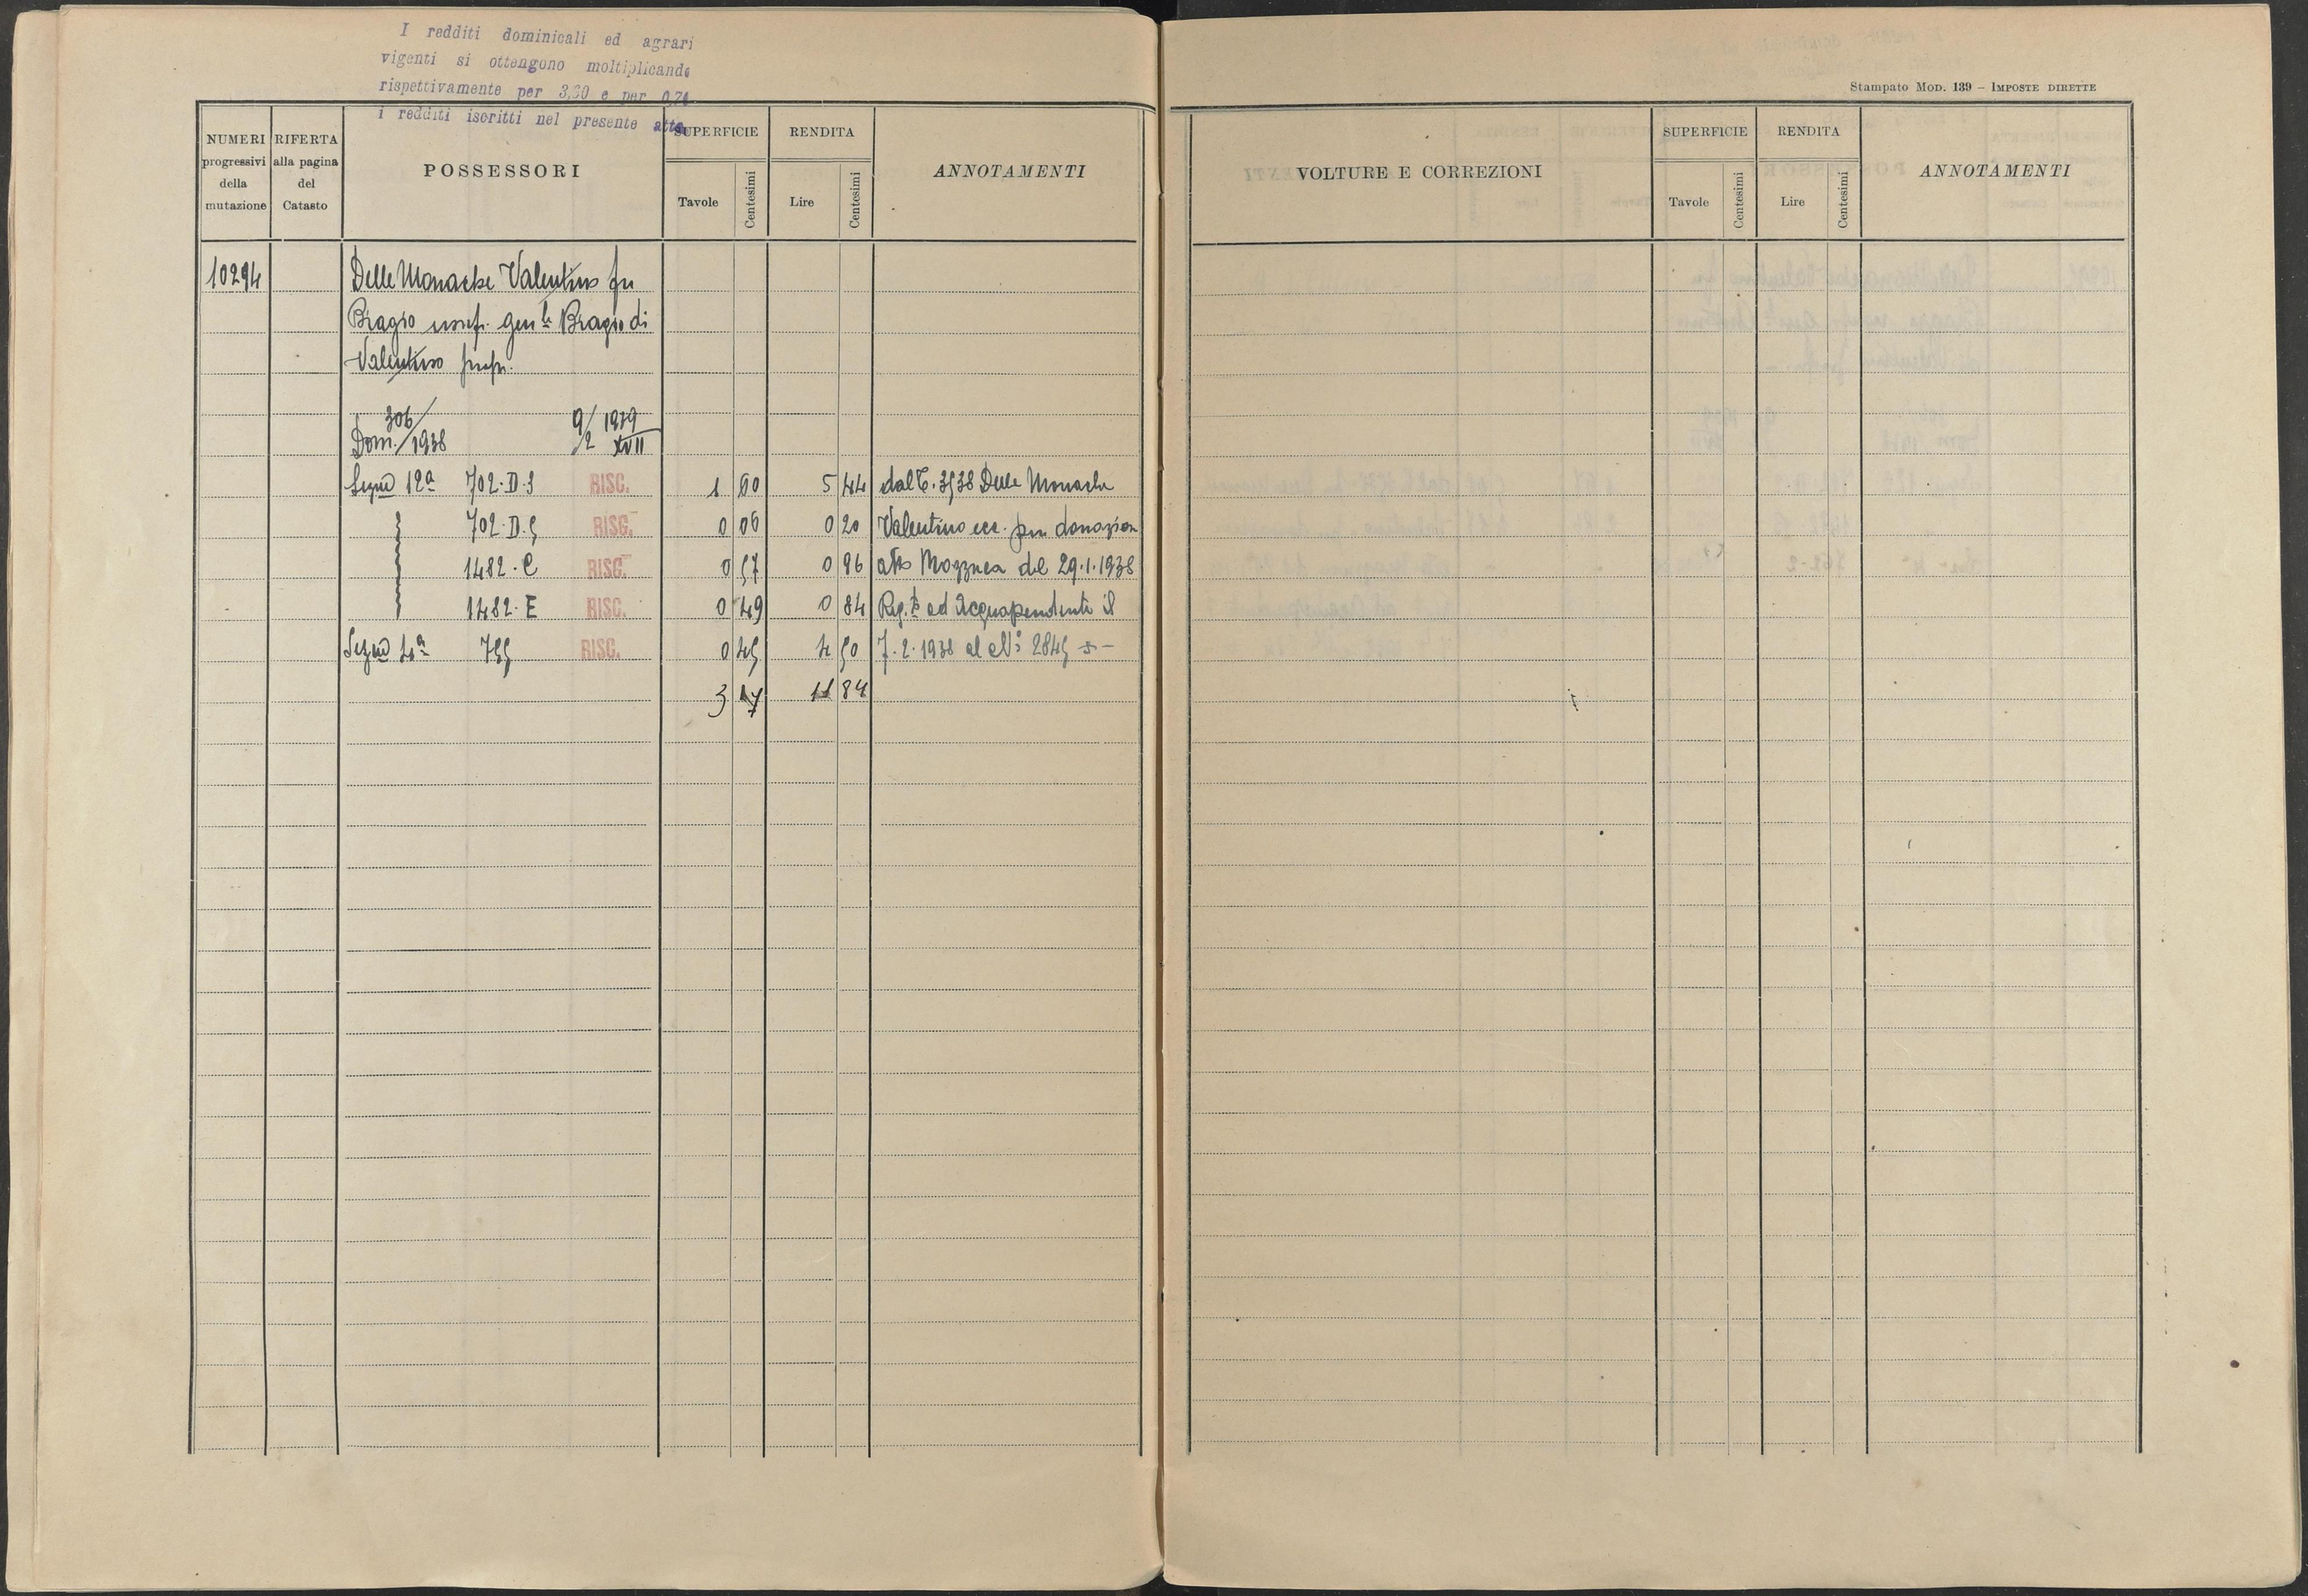 I redditi dominicali ed agrari
vigenti si ottengono moltiplicando
rispettivamente per 3,30 e per 0,74
i redditi iscritti nel presente atto
NUMERI progressivi della mutazione
RIFERTA alla pagina del Catasto
POSSESSORI
SUPERFICIE
Tavole Centesimi
RENDITA
Lire Centesimi
ANNOTAMENTI
10294 Delle Monache Valentino fu
Biagio usufr. gen.le Biagio di
Valentino propr.
306/ 9/ 1939
Dom./1938 /2 XVII
Segue 12a 702.D.3 RISC. 1 60 5 44 dal C. 3538 Delle Monache
702.D.5 RISC. 0 06 0 20 Valentino ecc. per donazion
1482.C RISC. 0 57 0 96 atto del 29.1.1938
1482.E RISC. 0 49 0 84 Reg.to ad Acquapendente il
Segue 4a 755 RISC. 0 45 4 50 7.2.1938 al N° 2845
3 17 11 84
Stampato MOD. 139 – IMPOSTE DIRETTE
VOLTURE E CORREZIONI
SUPERFICIE
Tavole Centesimi
RENDITA
Lire Centesimi
ANNOTAMENTI